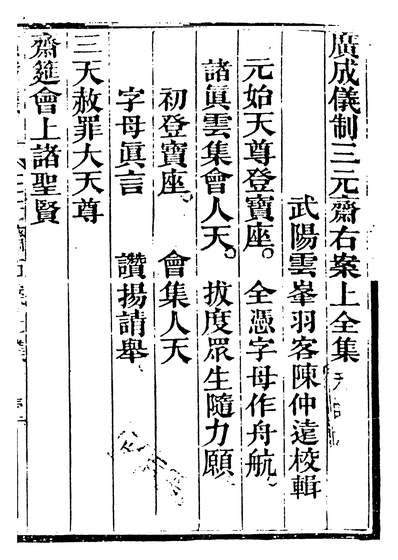 廣成儀制三元齋右案上全集
武陽雲峯羽客陳仲遠校輯
元始天尊登寶座。全憑字母作舟航。
諸眞雲集會人天。拔度眾生隨力願。
初登寶座。會集人天
字母眞言 讚揚請舉
三天赦罪大天尊
齋筵會上諸聖賢